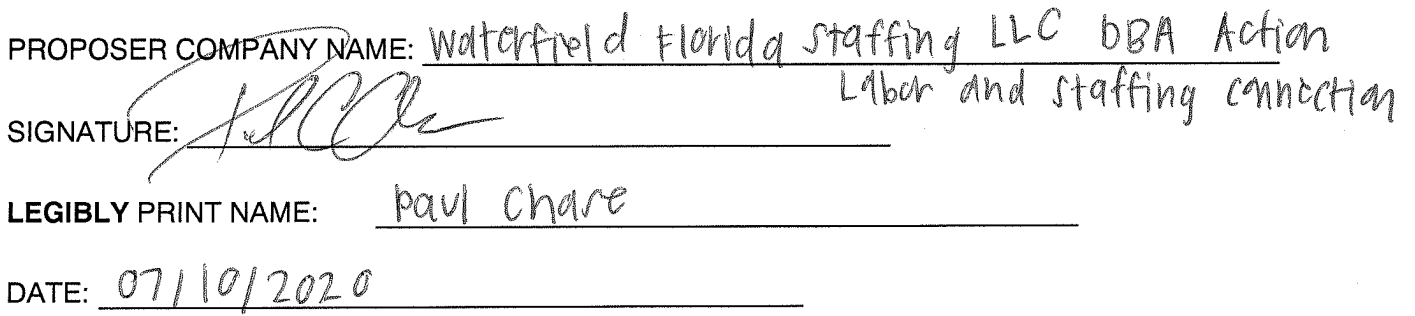 PROPOSER COMPANY NAME: Waterfield Florida Staffing LLC DBA Action
Labor and Staffing Connection
SIGNATURE:
LEGIBLY PRINT NAME: Paul Chase
DATE: 07/10/2020